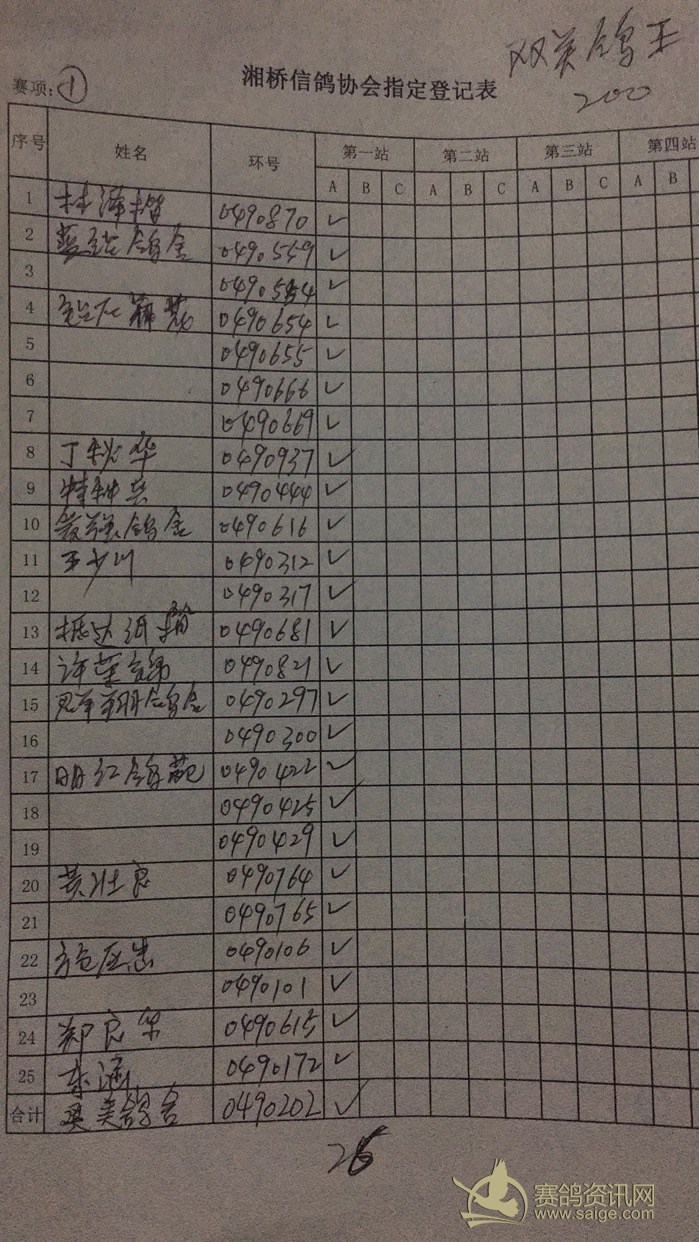 双关鸽王
200
湘桥信鸽协会指定登记表
赛项: ①
序号 姓名 环号 第一站 第二站 第三站 第四站
A B C A B C A B C A B
1 林泽楷 0490870 ✓
2 鸽舍 0490559 ✓
3 0490554 ✓
4 0490654 ✓
5 0490655 ✓
6 0490666 ✓
7 0490669 ✓
8 丁秋华 0490937 ✓
9 特种兵 0490444 ✓
10 鸽舍 0490616 ✓
11 王少川 0490312 ✓
12 0490317 ✓
13 振达 0490681 ✓
14 许荣 0490821 ✓
15 翔鸽舍 0490297 ✓
16 0490300 ✓
17 明红鸽苑 0490422 ✓
18 0490425 ✓
19 0490429 ✓
20 黄壮良 0490764 ✓
21 0490765 ✓
22 0490106 ✓
23 0490101 ✓
24 郑良 0490615 ✓
25 东涵 0490172 ✓
合计 奥美鸽舍 0490202 ✓
26
赛鸽资讯网
www.saige.com